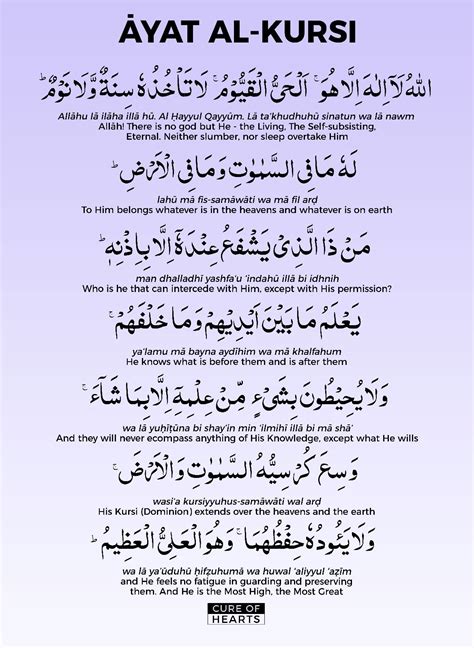 ĀYAT AL-KURSI
اللّٰهُ لَآ اِلٰهَ اِلَّا هُوَ ۚ اَلْحَيُّ الْقَيُّوْمُ ۚ لَا تَاْخُذُهٗ سِنَةٌ وَّلَا نَوْمٌ ؕ
Allāhu lā ilāha illā hū. Al Ḥayyul Qayyūm. Lā ta'khudhuhū sinatun wa lā nawm
Allāh! There is no god but He - the Living, The Self-subsisting,
Eternal. Neither slumber, nor sleep overtake Him
لَهٗ مَا فِي السَّمٰوٰتِ وَمَا فِي الْاَرْضِ ؕ
lahū mā fis-samāwāti wa mā fil arḍ
To Him belongs whatever is in the heavens and whatever is on earth
مَنْ ذَا الَّذِيْ يَشْفَعُ عِنْدَهٗٓ اِلَّا بِاِذْنِهٖ ؕ
man dhalladhī yashfa'u 'indahū illā bi idhnih
Who is he that can intercede with Him, except with His permission?
يَعْلَمُ مَا بَيْنَ اَيْدِيْهِمْ وَمَا خَلْفَهُمْ ۚ
ya'lamu mā bayna aydīhim wa mā khalfahum
He knows what is before them and is after them
وَلَا يُحِيْطُوْنَ بِشَيْءٍ مِّنْ عِلْمِهٖٓ اِلَّا بِمَا شَآءَ ۚ
wa lā yuḥīṭūna bi shay'in min 'ilmihī illā bi mā shā'
And they will never ecompass anything of His Knowledge, except what He wills
وَسِعَ كُرْسِيُّهُ السَّمٰوٰتِ وَالْاَرْضَ ۚ
wasi'a kursiyyuhus-samāwāti wal arḍ
His Kursi (Dominion) extends over the heavens and the earth
وَلَا يَـُٔوْدُهٗ حِفْظُهُمَا ۚ وَهُوَ الْعَلِيُّ الْعَظِيْمُ ؕ
wa lā ya'ūduhū ḥifẓuhumā wa huwal 'aliyyul 'aẓīm
and He feels no fatigue in guarding and preserving
them. And He is the Most High, the Most Great
CURE OF
HEARTS